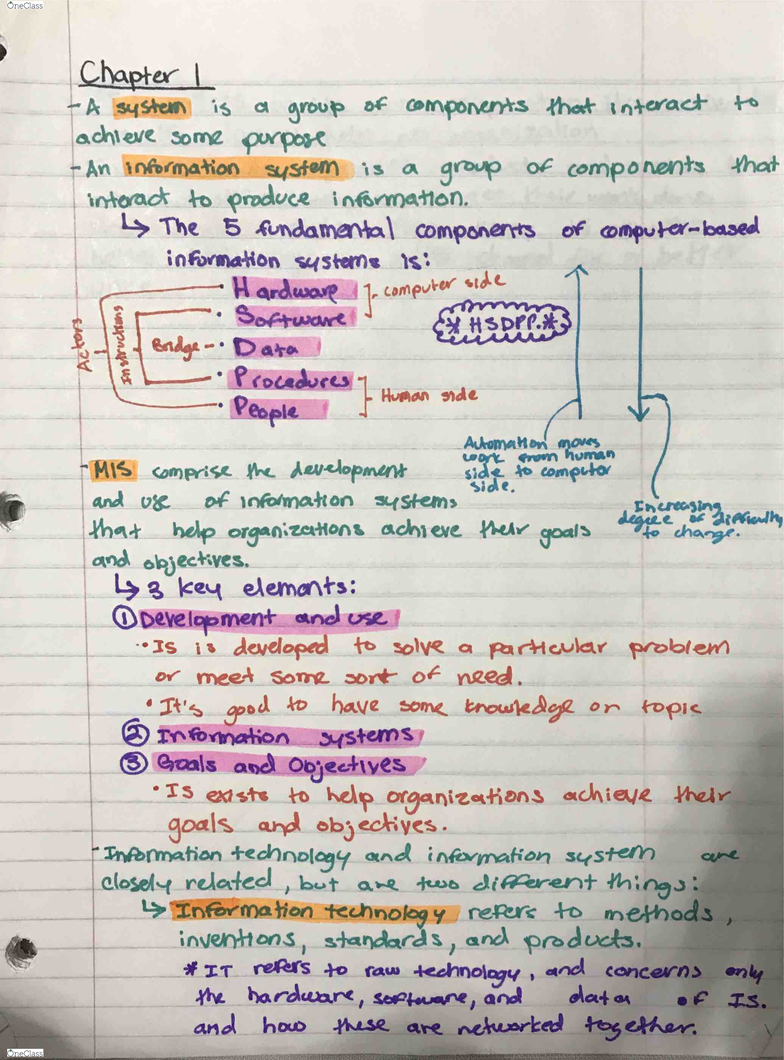 OneClass
Chapter 1
- A system is a group of components that interact to
achieve some purpose
- An information system is a group of components that
interact to produce information.
↳ The 5 fundamental components of computer-based
information systems is:
• Hardware
computer side
• Software
* HSDPP *
Actors
Instructions
Bridge - • Data
• Procedures
Human side
• People
Automation moves
work from human
side to computer
side.
Increasing
degree of difficulty
to change.
- MIS comprise the development
and use of information systems
that help organizations achieve their goals
and objectives.
↳ 3 key elements:
① Development and use
• IS is developed to solve a particular problem
or meet some sort of need.
• It's good to have some knowledge on topic
② Information systems
③ Goals and Objectives
• IS exists to help organizations achieve their
goals and objectives.
- Information technology and information system are
closely related, but are two different things:
↳ Information technology refers to methods,
inventions, standards, and products.
* IT refers to raw technology, and concerns only
the hardware, software, and data of IS.
and how these are networked together.
OneClass